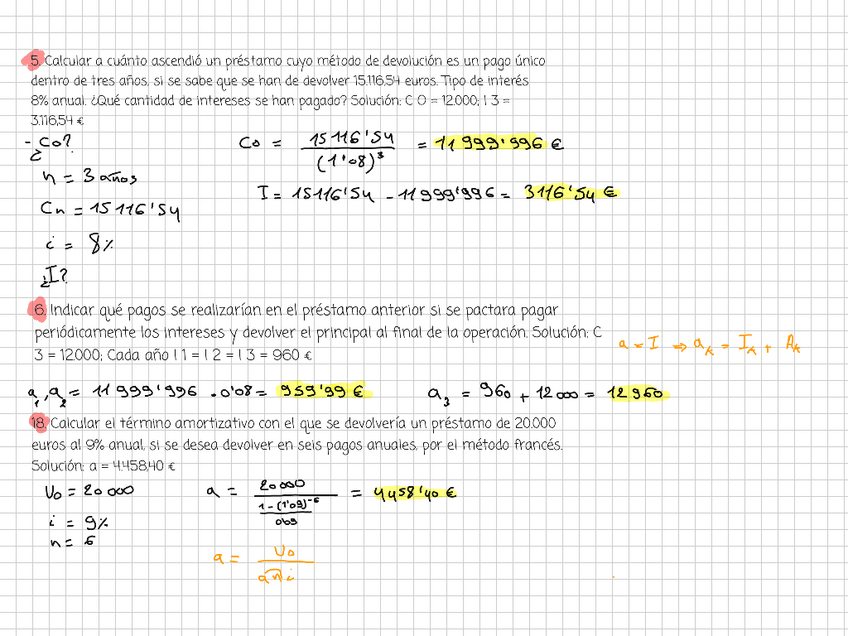 5. Calcular a cuánto ascendió un préstamo cuyo método de devolución es un pago único
dentro de tres años, si se sabe que se han de devolver 15.116,54 euros. Tipo de interés
8% anual. ¿Qué cantidad de intereses se han pagado? Solución: C 0 = 12.000; I 3 =
3.116,54 €
- ¿Co?
Co = 15116'54 / (1'08)³ = 11999'996 €
n = 3 años
I = 15116'54 - 11999'996 = 3116'54 €
Cn = 15116'54
i = 8%
¿I?
6. Indicar qué pagos se realizarían en el préstamo anterior si se pactara pagar
periódicamente los intereses y devolver el principal al final de la operación. Solución: C
3 = 12.000; Cada año I 1 = I 2 = I 3 = 960 €
a = I ⇒ aₖ = Iₖ + Aₖ
a₁, a₂ = 11999'996 · 0'08 = 959'99 €
a₃ = 960 + 12000 = 12960
18. Calcular el término amortizativo con el que se devolvería un préstamo de 20.000
euros al 9% anual, si se desea devolver en seis pagos anuales, por el método francés.
Solución: a = 4.458,40 €
Vo = 20000
a = 20000 / (1-(1'09)⁻⁶ / 0'09) = 4458'40 €
i = 9%
n = 6
a = Vo / an̄i